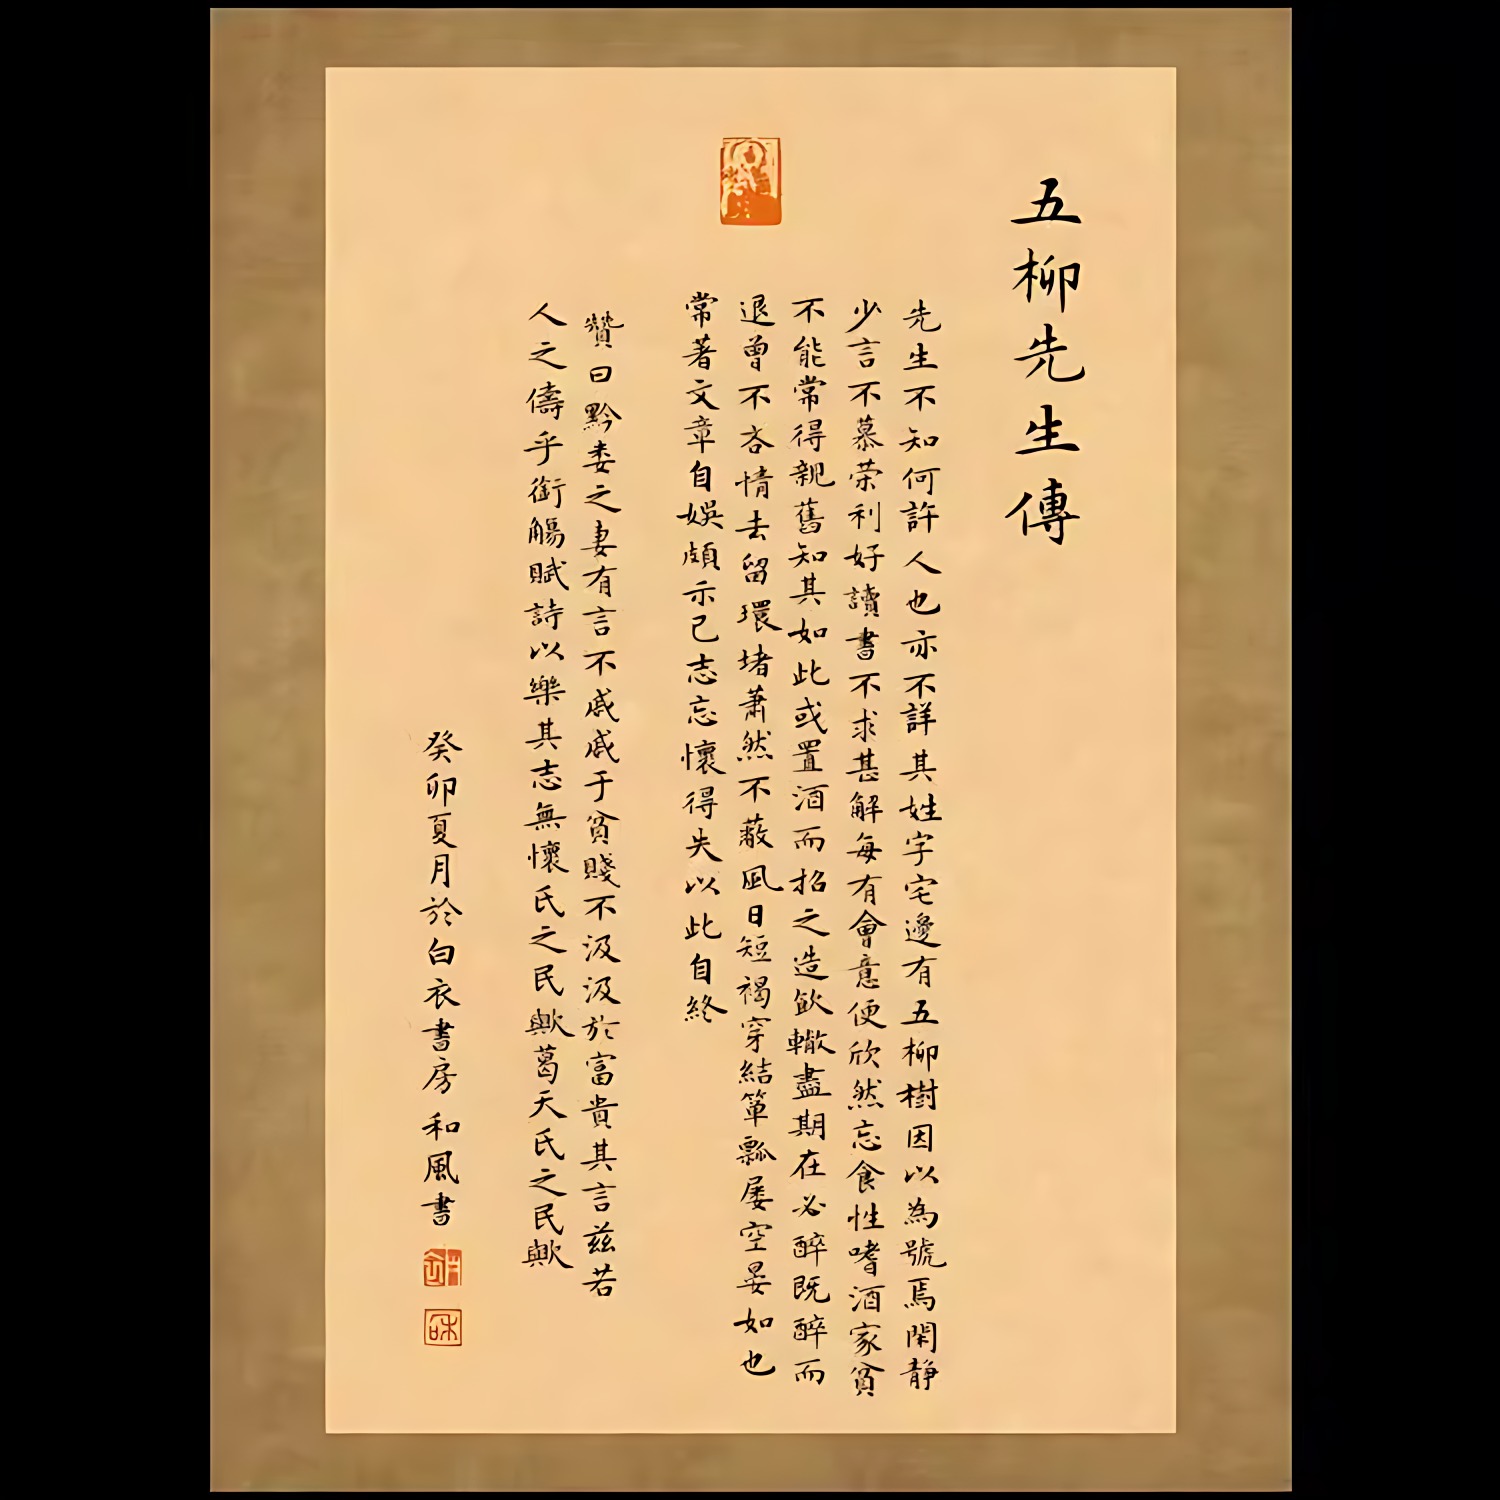 五柳先生傳
先生不知何許人也亦不詳其姓字宅邊有五柳樹因以為號焉閑静
少言不慕荣利好讀書不求甚解每有會意便欣然忘食性嗜酒家貧
不能常得親舊知其如此或置酒而招之造飲輒盡期在必醉既醉而
退曾不吝情去留環堵蕭然不蔽風日短褐穿結簞瓢屡空晏如也
常著文章自娯頗示己志忘懷得失以此自終
贊曰黔婁之妻有言不戚戚于貧賤不汲汲於富貴其言兹若
人之儔乎銜觴賦詩以樂其志無懷氏之民歟葛天氏之民歟
癸卯夏月於白衣書房和風書